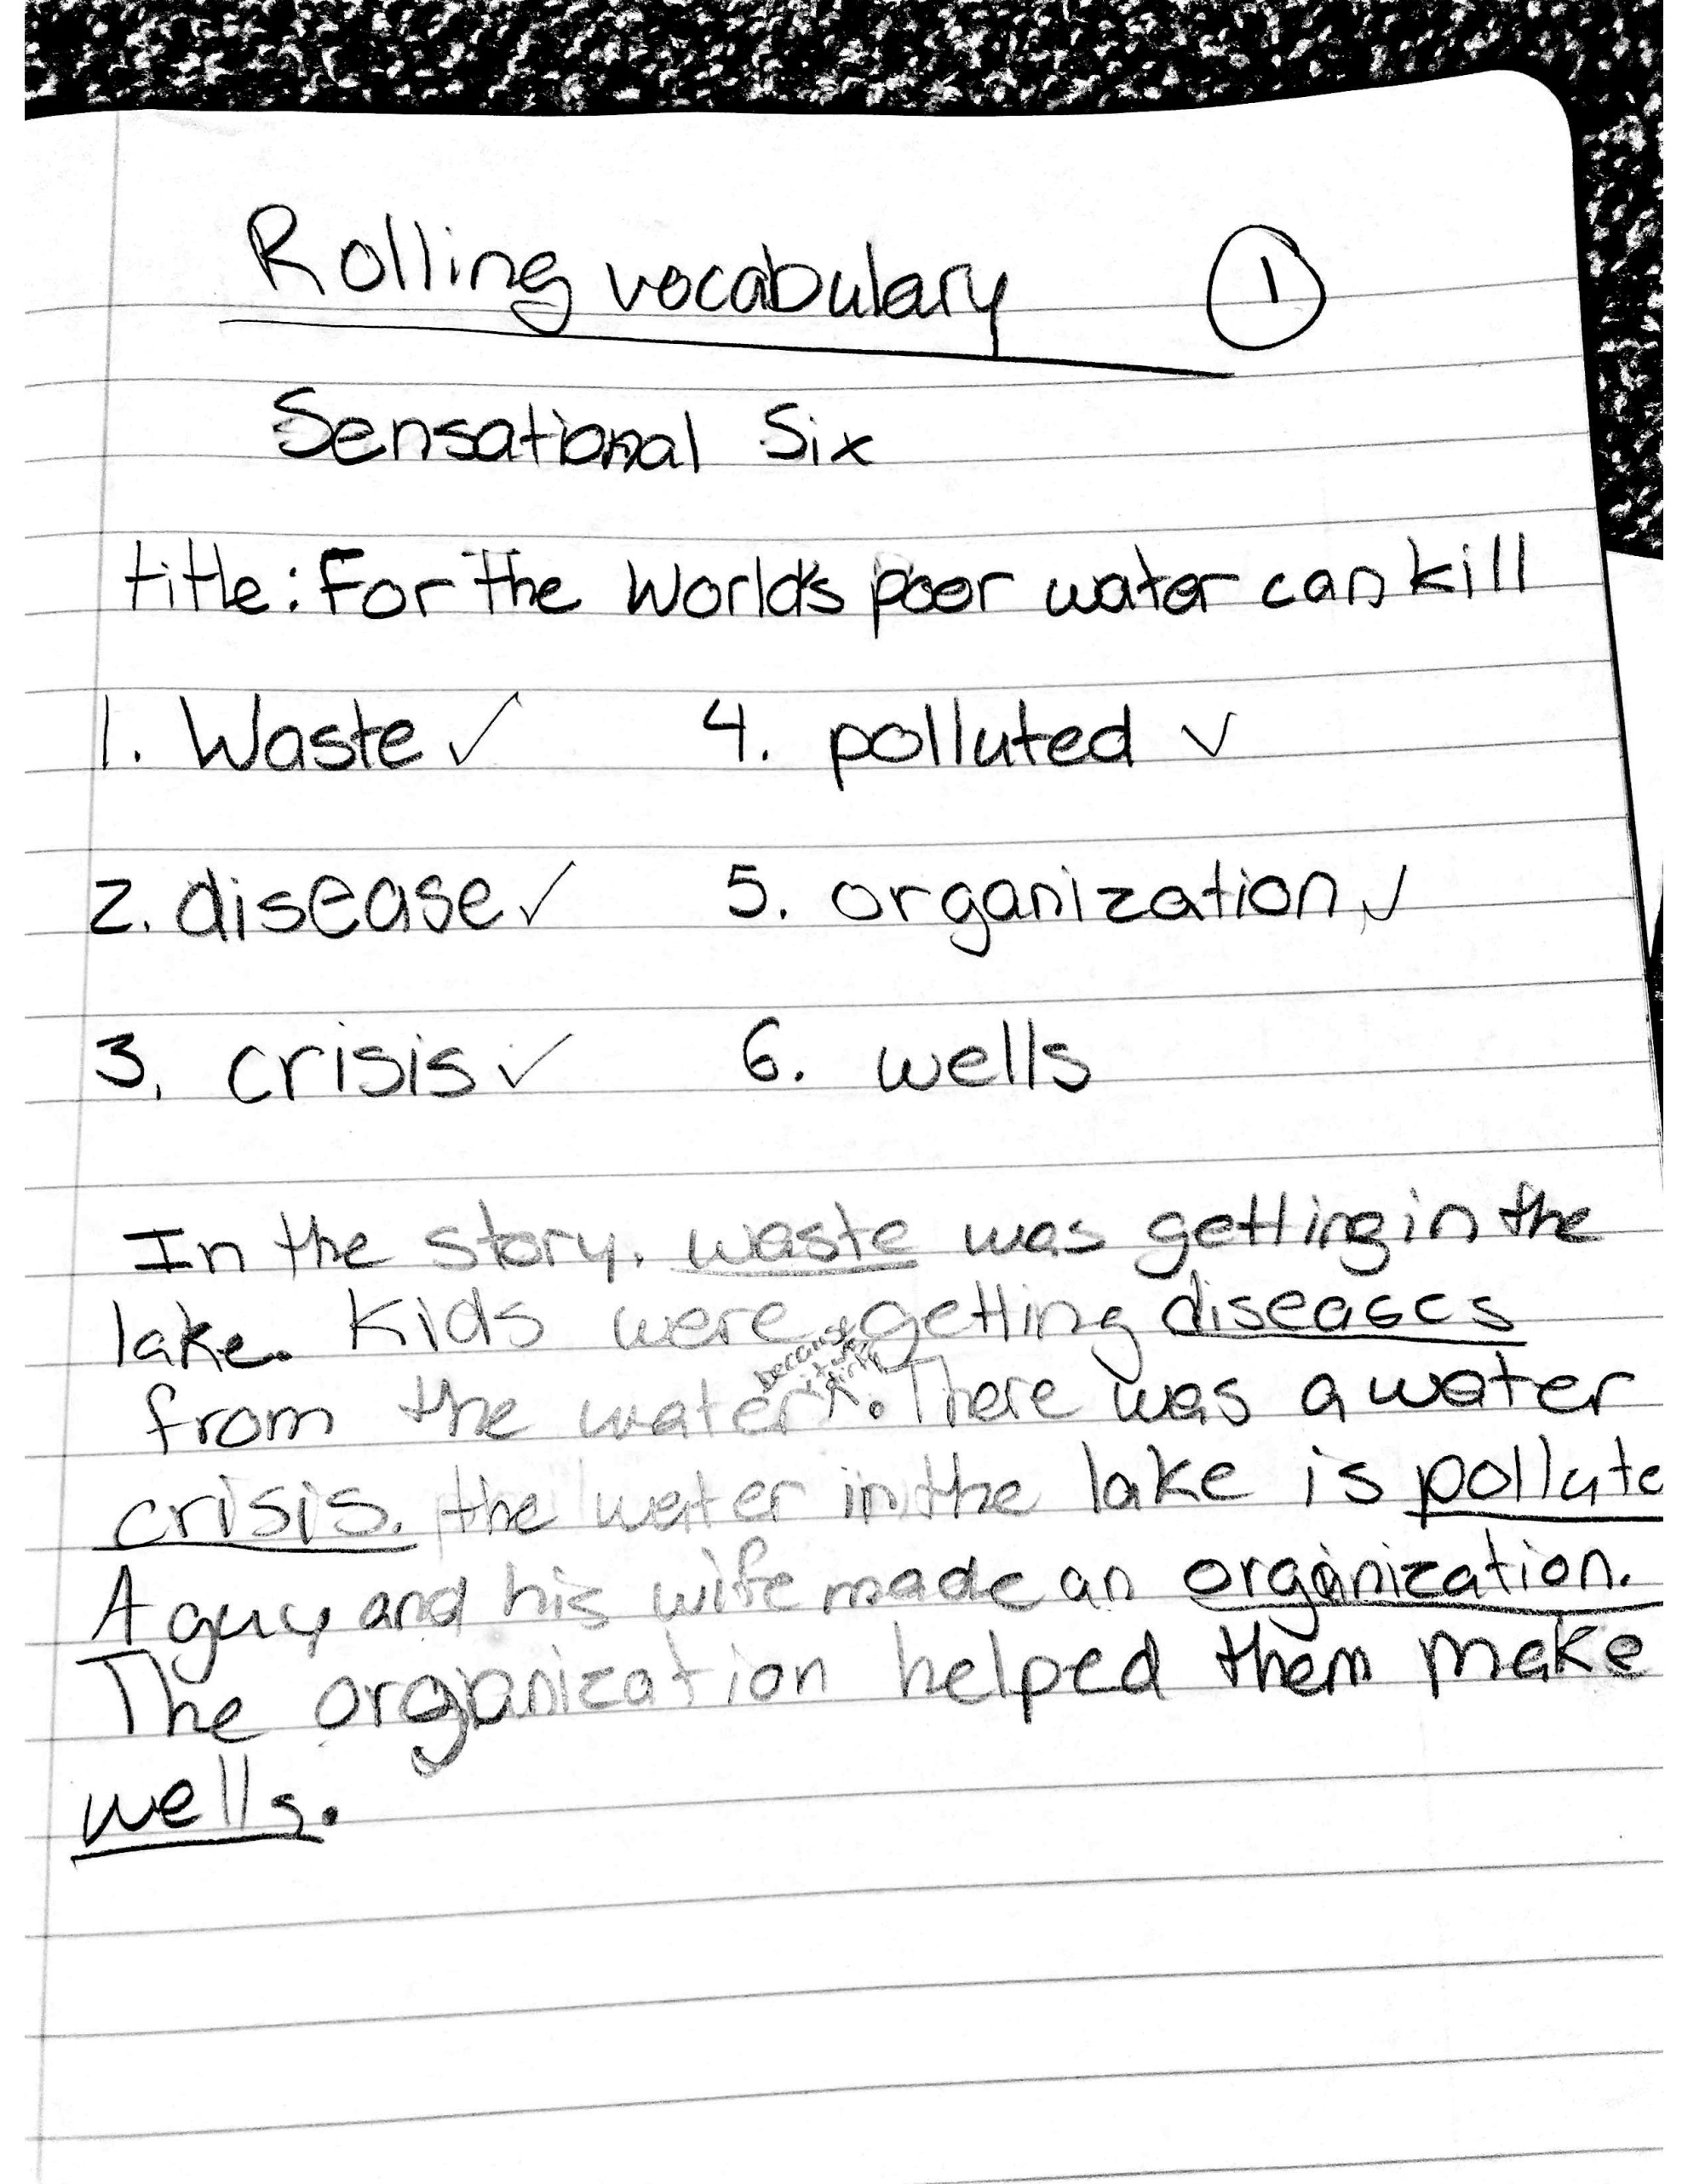 Rolling vocabulary 1
Sensational Six
title: For the World's poor water can kill
1. Waste ✓ 4. polluted ✓
2. disease ✓ 5. organization ✓
3. crisis ✓ 6. wells
In the story, waste was getting in the
lake. Kids were getting diseases
because it was dirty
from the water ^. There was a water
crisis. the water in the lake is pollute
A guy and his wife made an organization.
The organization helped them make
wells.